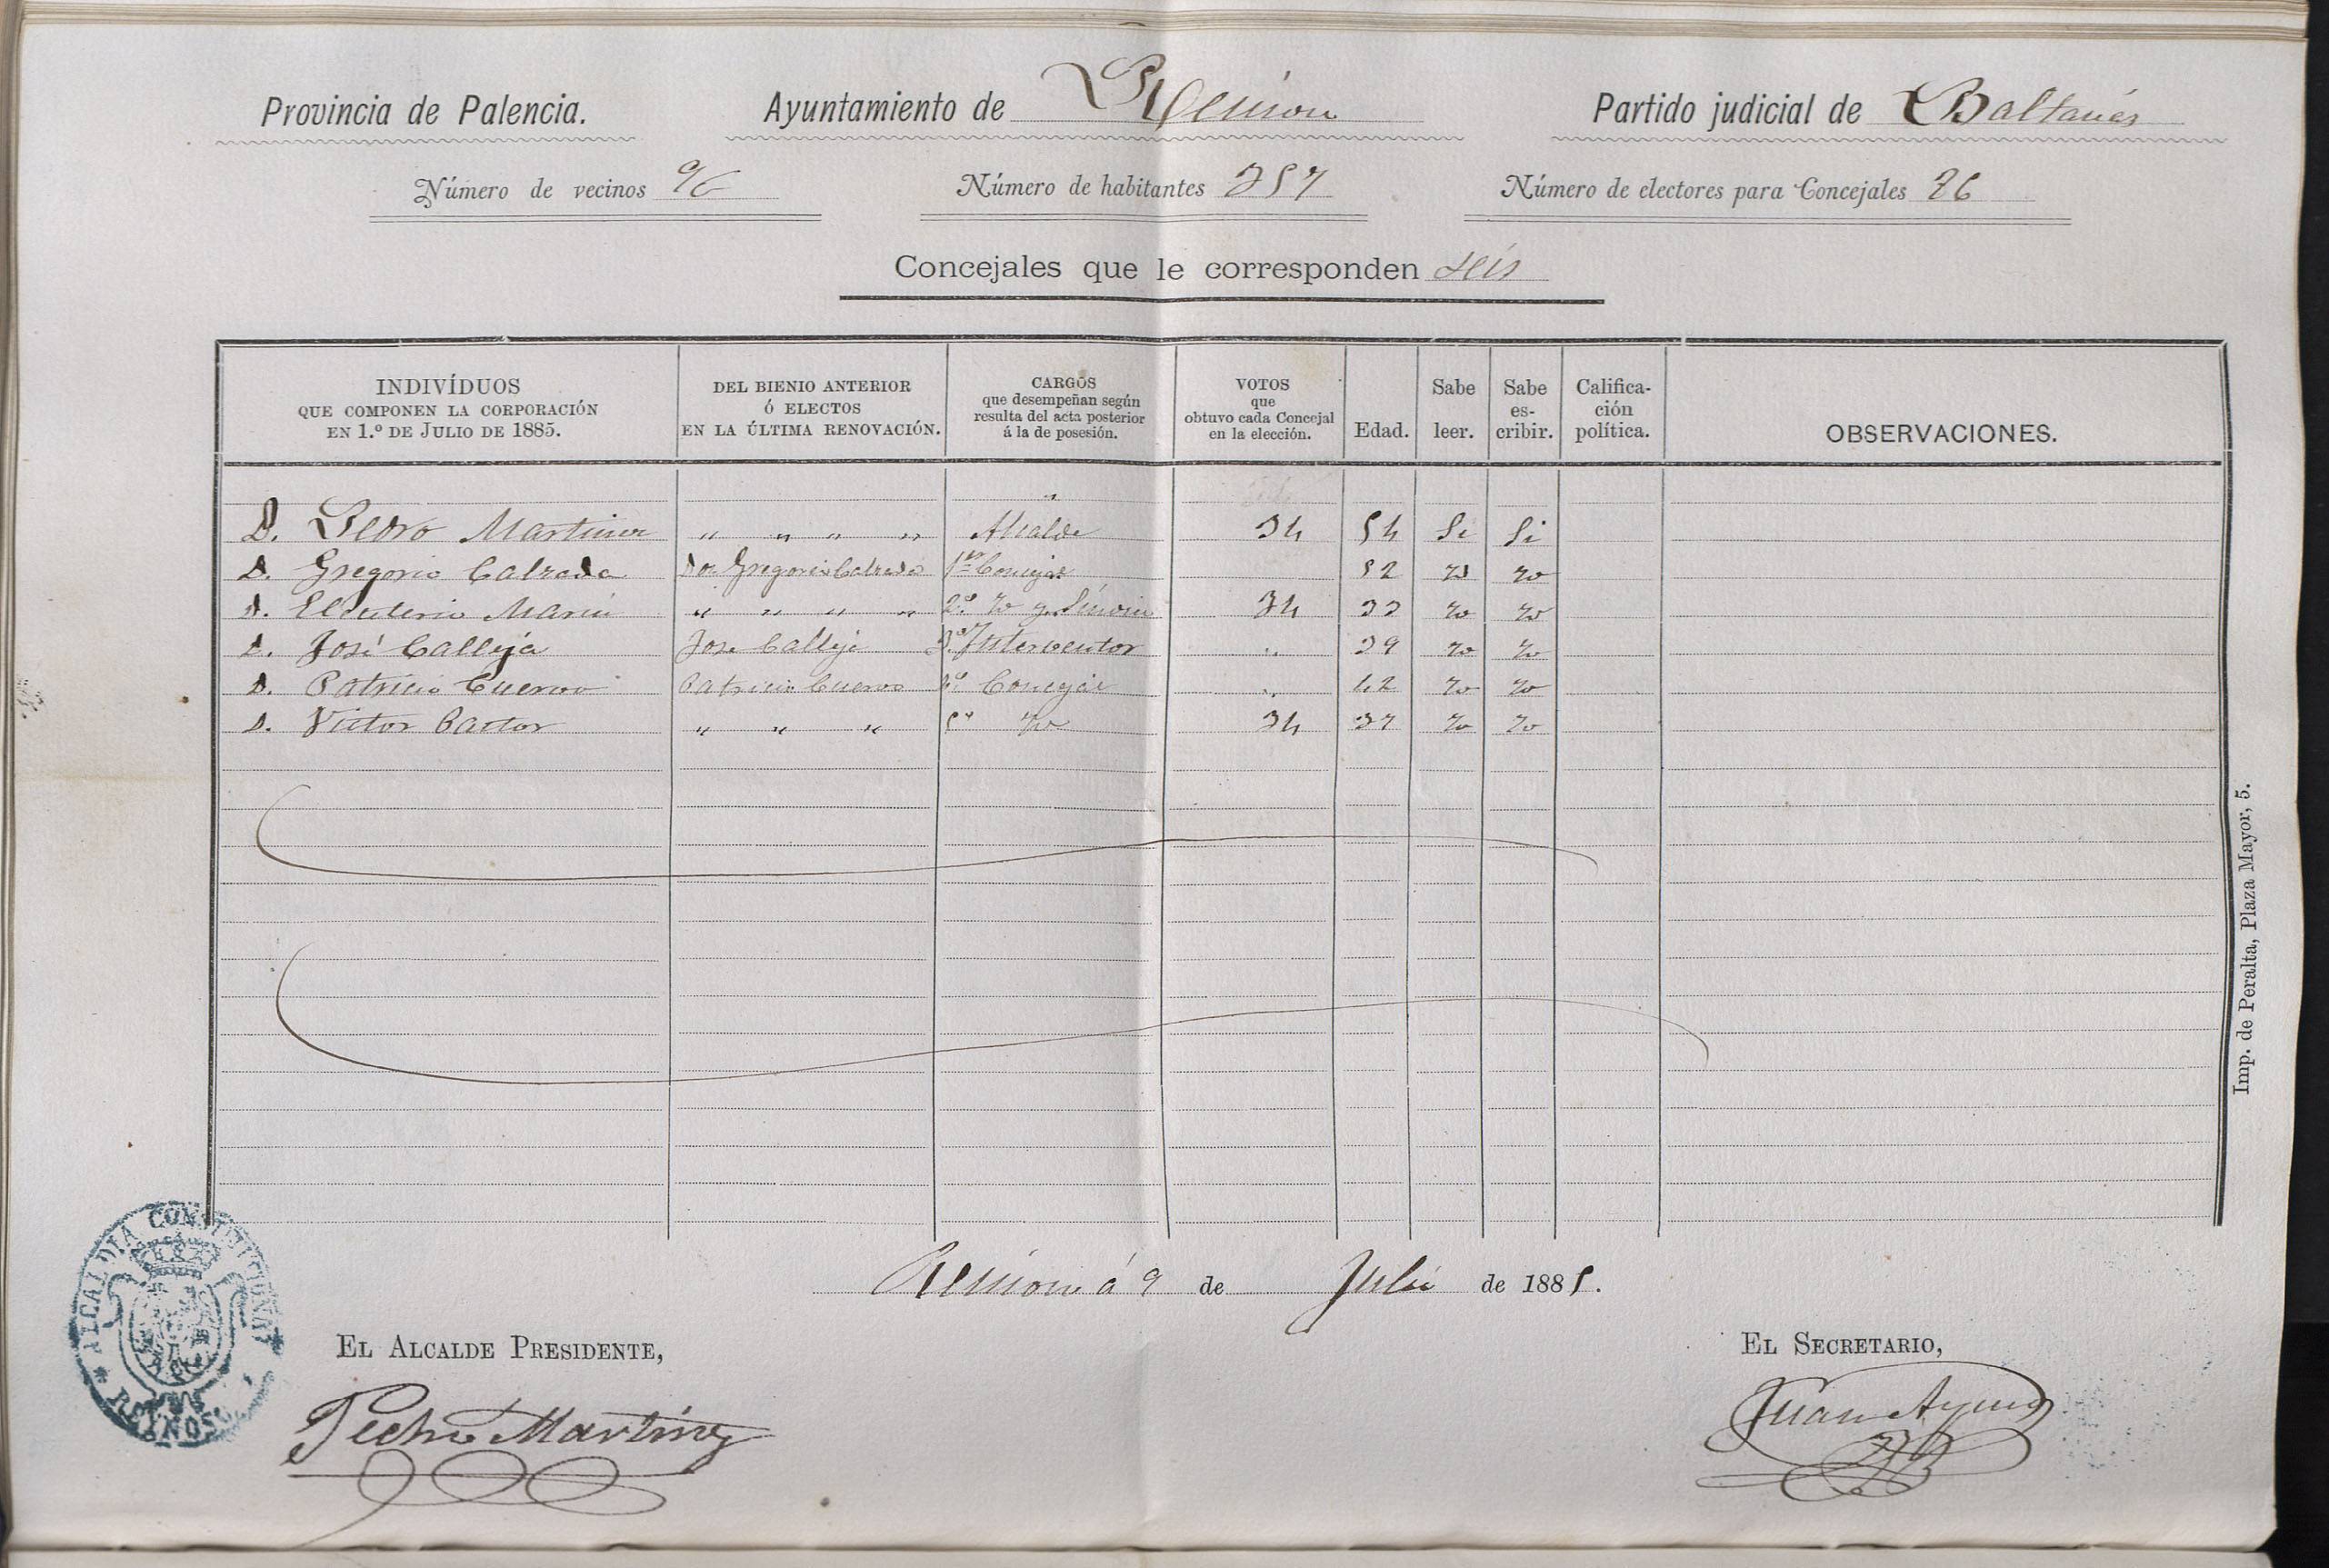 Provincia de Palencia. Ayuntamiento de Partido judicial de Baltanás
Número de vecinos 96 Número de habitantes 357 Número de electores para Concejales 86
Concejales que le corresponden seis
INDIVÍDUOS QUE COMPONEN LA CORPORACIÓN EN 1.º DE JULIO DE 1885. DEL BIENIO ANTERIOR Ó ELECTOS EN LA ÚLTIMA RENOVACIÓN. CARGOS que desempeñan según resulta del acta posterior á la de posesión. VOTOS que obtuvo cada Concejal en la elección. Edad. Sabe leer. Sabe es-cribir. Califica-ción política. OBSERVACIONES.
D. Pedro Martinez " " " " Alcalde 34 54 Si Si
D. Gregorio Calzada Dn Gregorio Calzada 1er Concejal 52 id id
D. Eleuterio Marin " " " " 2º id y Sindico 34 33 id id
D. José Calleja Jose Calleja 3º Interventor " 39 id id
D. Patricio Cuervo Patricio Cuervo 4º Concejal " 42 id id
D. Victor Pastor " " " 5º id 34 37 id id
á 9 de Julio de 1885.
EL ALCALDE PRESIDENTE, EL SECRETARIO,
Pedro Martinez Juan
ALCALDIA CONSTITUCIONAL
REINOSO
Imp. de Peralta, Plaza Mayor, 5.